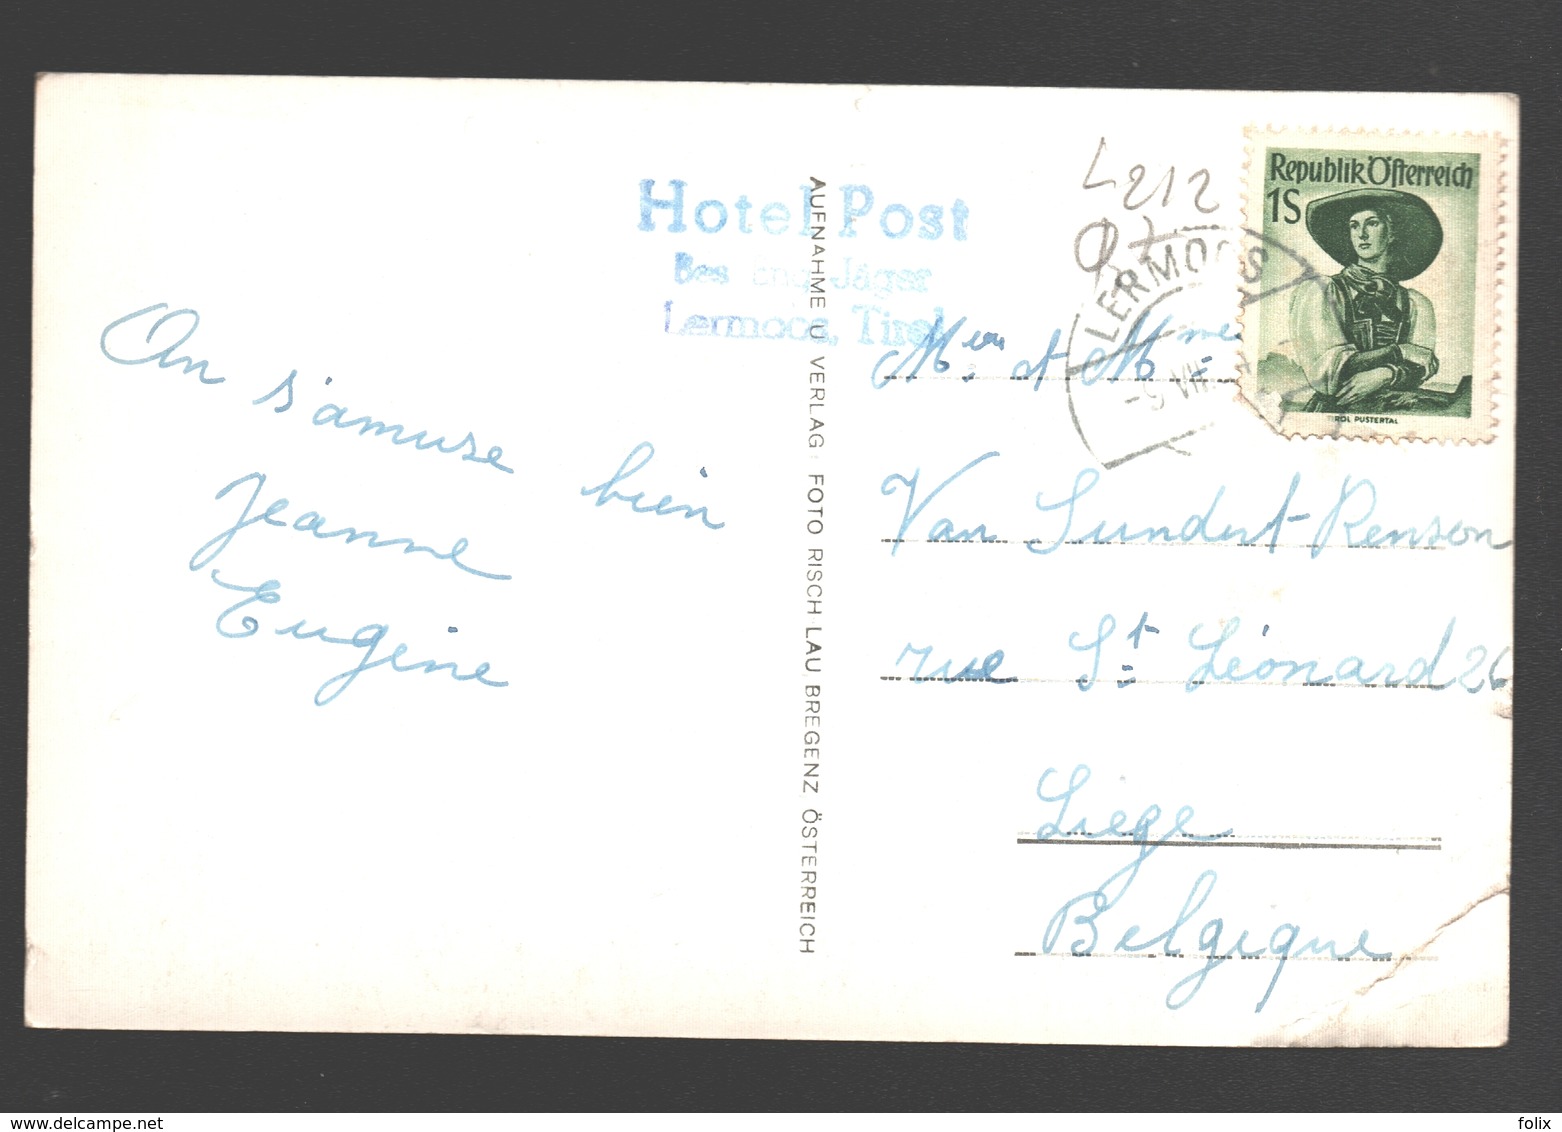 Hotel Post
Jäger
Lermoos, Tirol
On s'amuse bien
Jeanne
Eugène
AUFNAHME U VERLAG: FOTO RISCH-LAU, BREGENZ ÖSTERREICH
L212
LERMOOS
Republik Österreich
1S
TIROL PUSTERTAL
Mon. et Mme
Van Sundert-Renson
rue St. Léonard 26
Liège
Belgique
felix